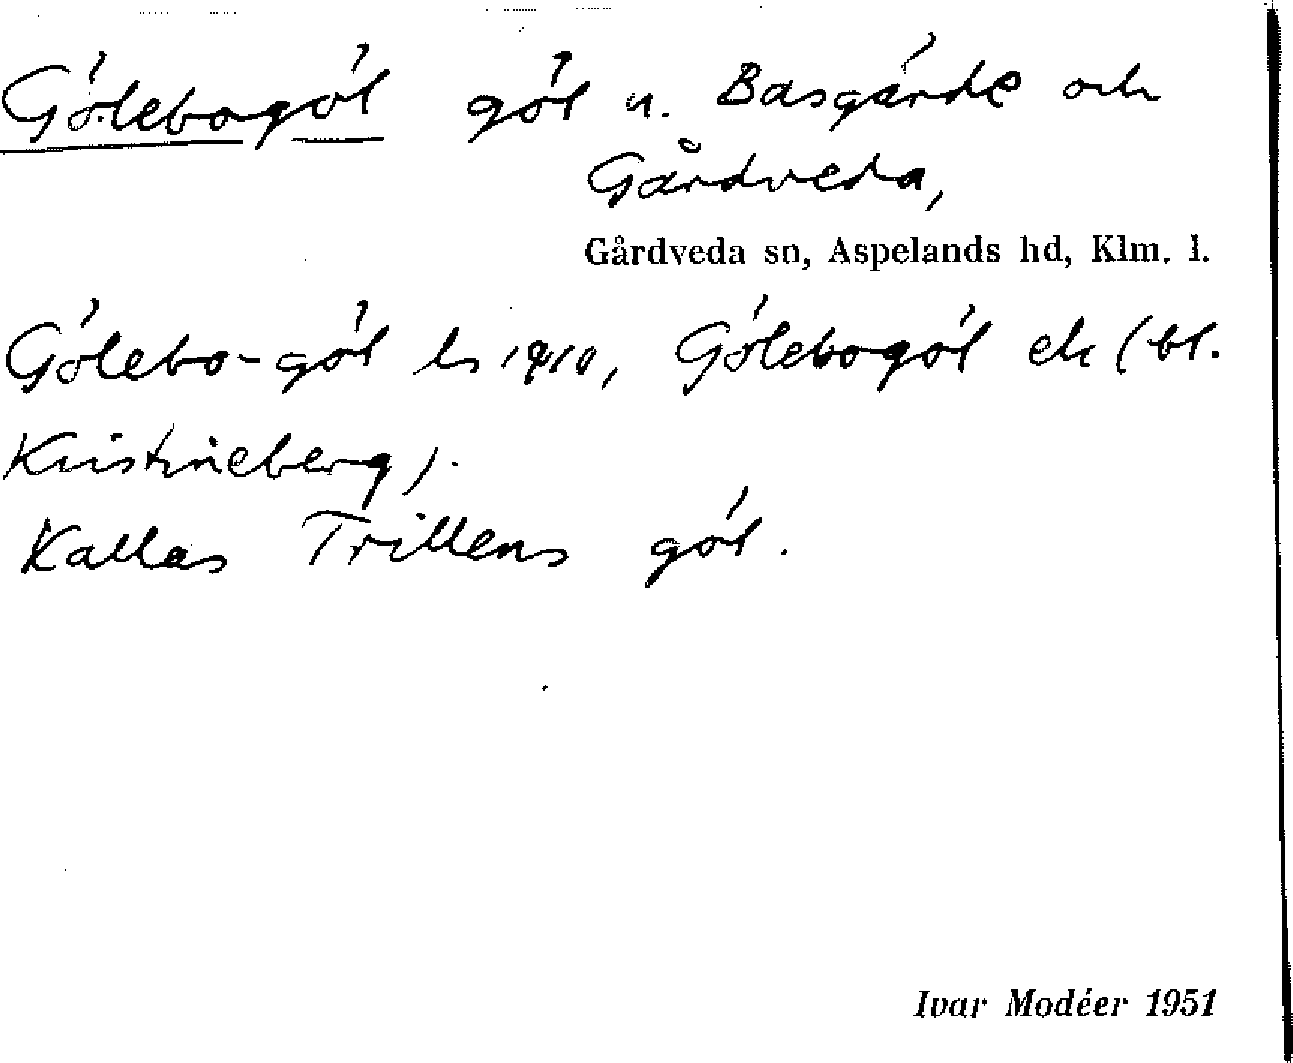 Gölebogöl göl u. Basgärde och
Gårdveda,
Gårdveda sn, Aspelands hd, Klm. l.
Gölebo-göl ls 1910, Gölebogöl ek (bl.
Kristineberg).
Kallas Trillens göl.
Ivar Modéer 1951